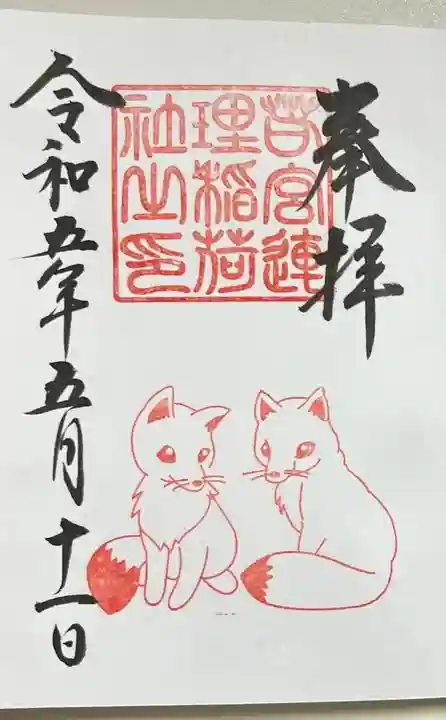 奉拝
若宮連
理稲荷
社之印
令和五年五月十一日